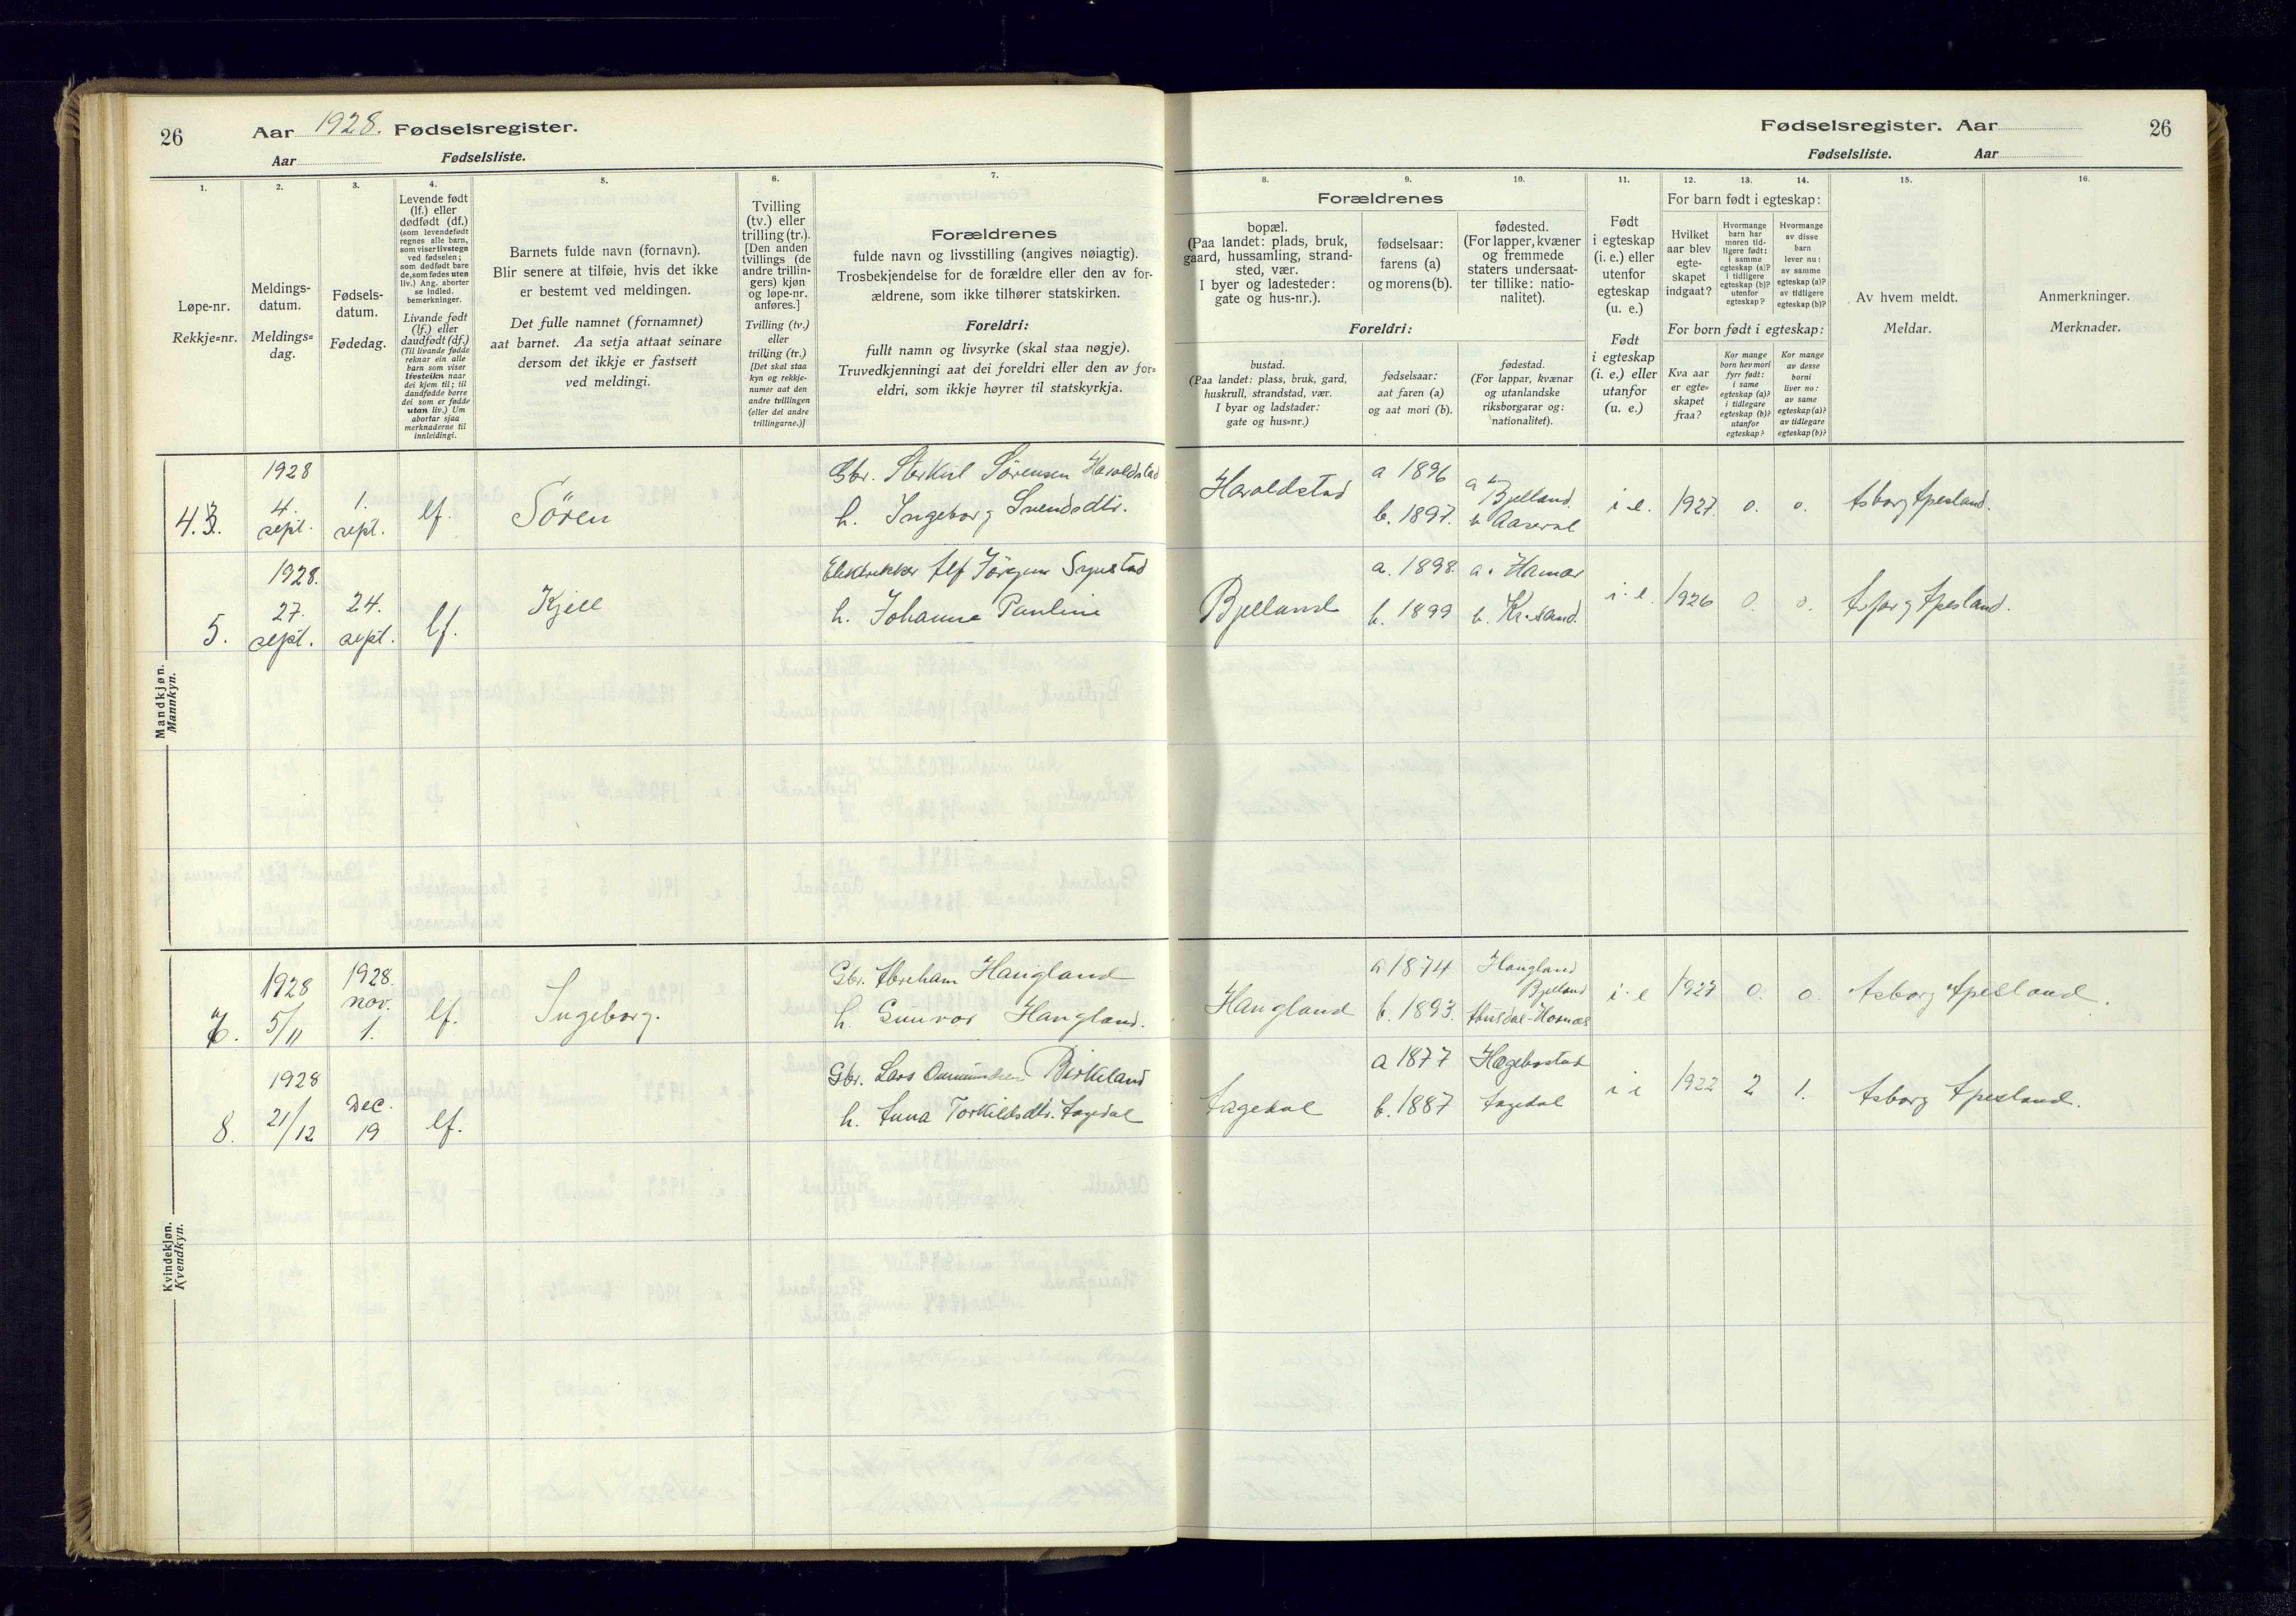 26
Aar 1928. Fødselsregister.
Aar Fødselsliste.
Fødselsregister. Aar
26
Fødselsliste. Aar
1.
Løpe-nr.
Rekkje=nr.
2.
Meldings-
datum.
Meldings=
dag.
3.
Fødsels-
datum.
Fødedag.
4.
Levende født
(lf.) eller
dødfødt (df.)
(som levendefødt
regnes alle barn,
som viser livstegn
ved fødselen;
som dødfødt bare
de, som fødes uten
liv.) Ang. aborter
se indled.
bemerkninger.
Livande født
(lf.) eller
daudfødt (df.)
(Til livande fødde
reknar ein alle
barn som viser
livsteikn naar
dei kjem til; til
daudfødde berre
dei som er fødde
utan liv.) Um
abortar sjaa
merknaderne til
innleidingi.
5.
Barnets fulde navn (fornavn).
Blir senere at tilføie, hvis det ikke
er bestemt ved meldingen.
Det fulle namnet (fornamnet)
aat barnet. Aa setja attaat seinare
dersom det ikkje er fastsett
ved meldingi.
6.
Tvilling
(tv.) eller
trilling (tr.).
[Den anden
tvillings (de
andre trillin-
gers) kjøn
og løpe-nr.
anføres.]
Tvilling (tv.)
eller
trilling (tr.)
[Det skal staa
kyn og rekkje-
numer aat den
andre tvillingen
(eller dei andre
trillingarne.)]
7.
Forældrenes
fulde navn og livsstilling (angives nøiagtig).
Trosbekjendelse for de forældre eller den av for-
ældrene, som ikke tilhører statskirken.
Foreldri:
fullt namn og livsyrke (skal staa nøgje).
Truvedkjenningi aat dei foreldri eller den av for=
eldri, som ikkje høyrer til statskyrkja.
Forældrenes
8.
bopæl.
(Paa landet: plads, bruk,
gaard, hussamling, strand-
sted, vær.
I byer og ladesteder:
gate og hus-nr.).
9.
fødselsaar:
farens (a)
og morens (b).
10.
fødested.
(For lapper, kvæner
og fremmede
staters undersaat-
ter tillike: natio-
nalitet).
Foreldri:
bustad.
(Paa landet: plass, bruk, gard,
huskrull, strandstad, vær.
I byar og ladstader:
gate og hus=nr.)
fødselsaar:
aat faren (a)
og aat mori (b).
fødestad.
(For lappar, kvænar
og utanlandske
riksborgarar og:
nationalitet).
11.
Født
i egteskap
(i. e.) eller
utenfor
egteskap
(u. e.)
Født
i egteskap
(i. e.) eller
utanfor
(u. e.)
For barn født i egteskap:
12.
Hvilket
aar blev
egte-
skapet
indgaat?
13.
Hvormange
barn har
moren tid-
ligere født:
i samme
egteskap (a)?
i tidligere
egteskap (b)?
utenfor
egteskap?
14.
Hvormange
av disse
barn
lever nu:
av samme
egteskap (a)?
av tidligere
egteskap (b)?
For born født i egteskap:
Kva aar
er egte=
skapet
fraa?
Kor mange
born hev mori
fyrr født:
i same
egteskap (a)?
i tidlegare
egteskap (b)?
utanfor
egteskap?
Kor mange
av desse
borni
liver no:
av same
egteskap (a)?
av tidlegare
egteskap (b)?
15.
Av hvem meldt.
Meldar.
16.
Anmerkninger.
Merknader.
Mandkjøn.
Mannkyn.
4. 1928 4. sept. 1. sept. lf. Sören
Gbr. Sørensen Haraldstad
h. Ingeborg Svendsdtr.
Haraldstad a 1896 b. 1897. a Bjelland. b Aaseral i. e. 1927. 0. 0. Asborg Apesland.
5. 1928. 27. sept. 24. sept. lf. Kjell
Elektrikker Alf Jörgen
h. Johanne Pauline
Bjelland a. 1898. b. 1899 a. Hamar b. Kr.sand. i. e. 1926 0. 0. Asborg Apesland.
Kvindekjøn.
Kvendkyn.
1928 5/11 1928. nov. 1. lf. Ingeborg.
Gbr. Abraham Haugland
h. Gunvor Haugland.
Haugland a 1874 b. 1893. Haugland Bjelland i. e 1927 0. 0. Asborg Apesland.
8. 1928 21/12 Dec. 19 lf.
Gbr. Lars Birkeland
h. Anna Torkildsdtr. Aagedal
Aagedal a 1877 b. 1887 Hægebostad Aagedal i e 1922 2 1. Asborg Apesland.